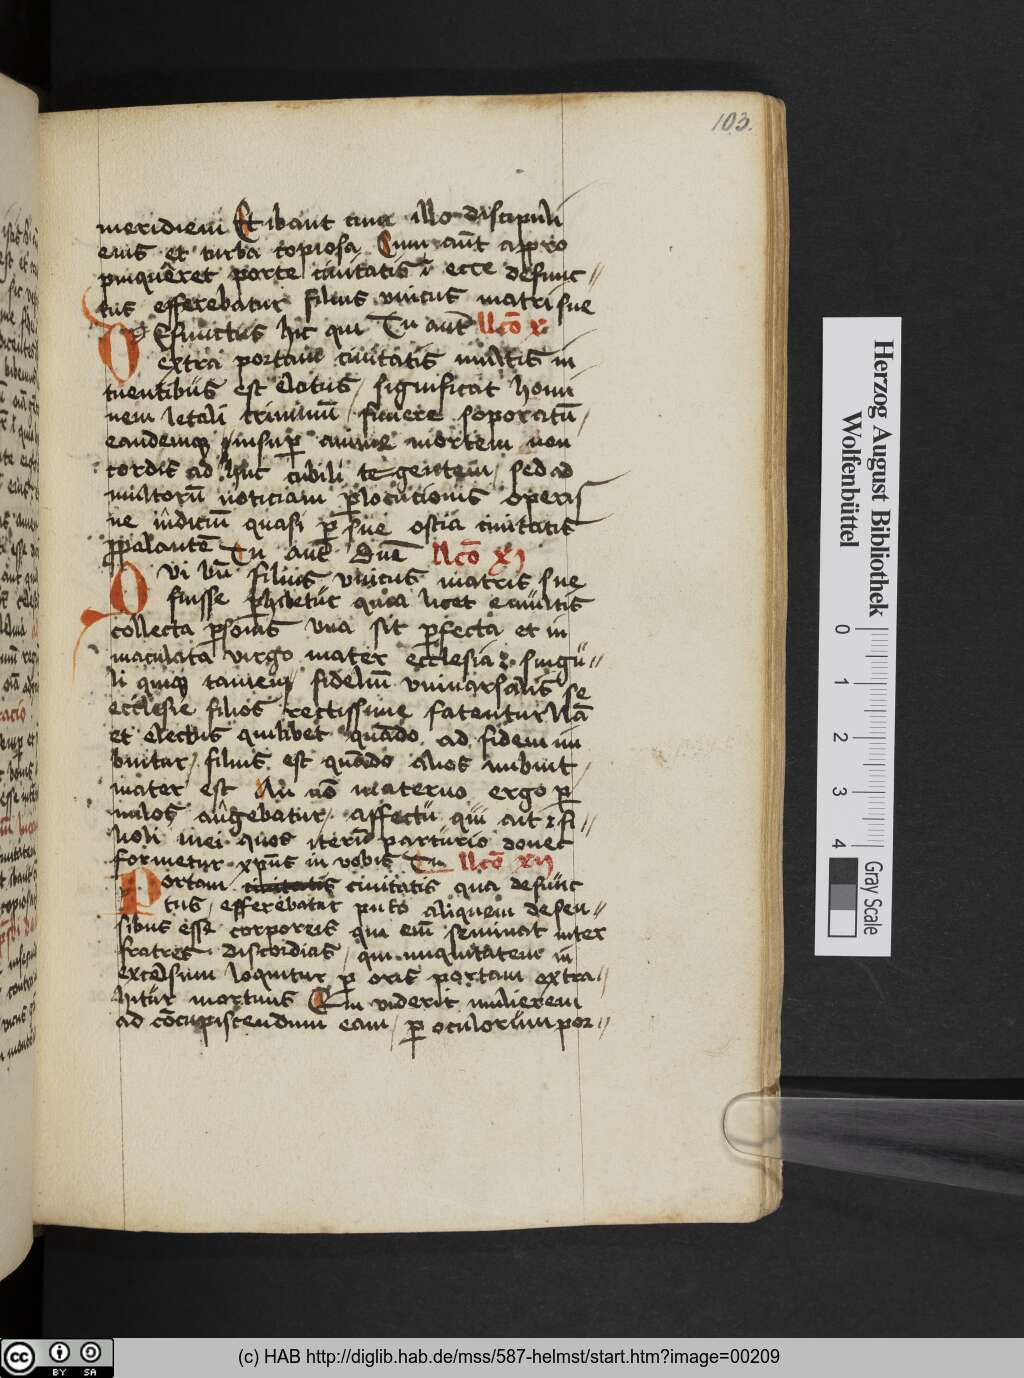 103.
meridiem Et ibant cum illo discipuli
eius et turba copiosa Cum aūt appro
pinquaret porte ciuitatis ecce defunc〃
tus efferebatur filius vnicus matri sue
Defunctus hic qui Tu aūt llc̄o x
extra portam ciuitatis multis in
tuentibus est elatus / significat homi
nem letali criminū funere soporatū /
eandemq insup anime mortem non
cordis ad huc cubili tegentem / sed ad
multorū noticiam p locucionis operis
ue indiciū quasi p sue ostia ciuitatis
ppalantē Tu aūt Dn̄e llc̄o xj
Qui bn̄ filius vnicus matris sue
fuisse phibetur quia licet e multis
collecta psonis vna sit pfecta et in
maculata virgo mater ecclesia singu〃
li quiq tamen fideliū vniuersalis se
ecclesie filios rectissime fatentur Nā
et electus quilibet quādo ad fidem im
buitur / filius est quādo alios imbuit /
mater est An nō materno ergo p
uulos augebatur affectu qui ait fi〃
lioli mei quos iterū parturio donec
formetur xp̄us in vobis Tu llc̄o xij
Portam ciuitatis ciuitatis qua defunc
tus / efferebatur puto aliquem de sen〃
sibus esse corporeis qui em̄ seminat inter
fratres discordias / qui iniquitatem in
excelsum loquitur p oris portam extra〃
hitur mortuus Qui viderit mulierem
ad cōcupiscendum eam / p oculorum por〃
Herzog August Bibliothek
Wolfenbüttel
0 1 2 3 4
Gray Scale
cc BY SA
(c) HAB http://diglib.hab.de/mss/587-helmst/start.htm?image=00209